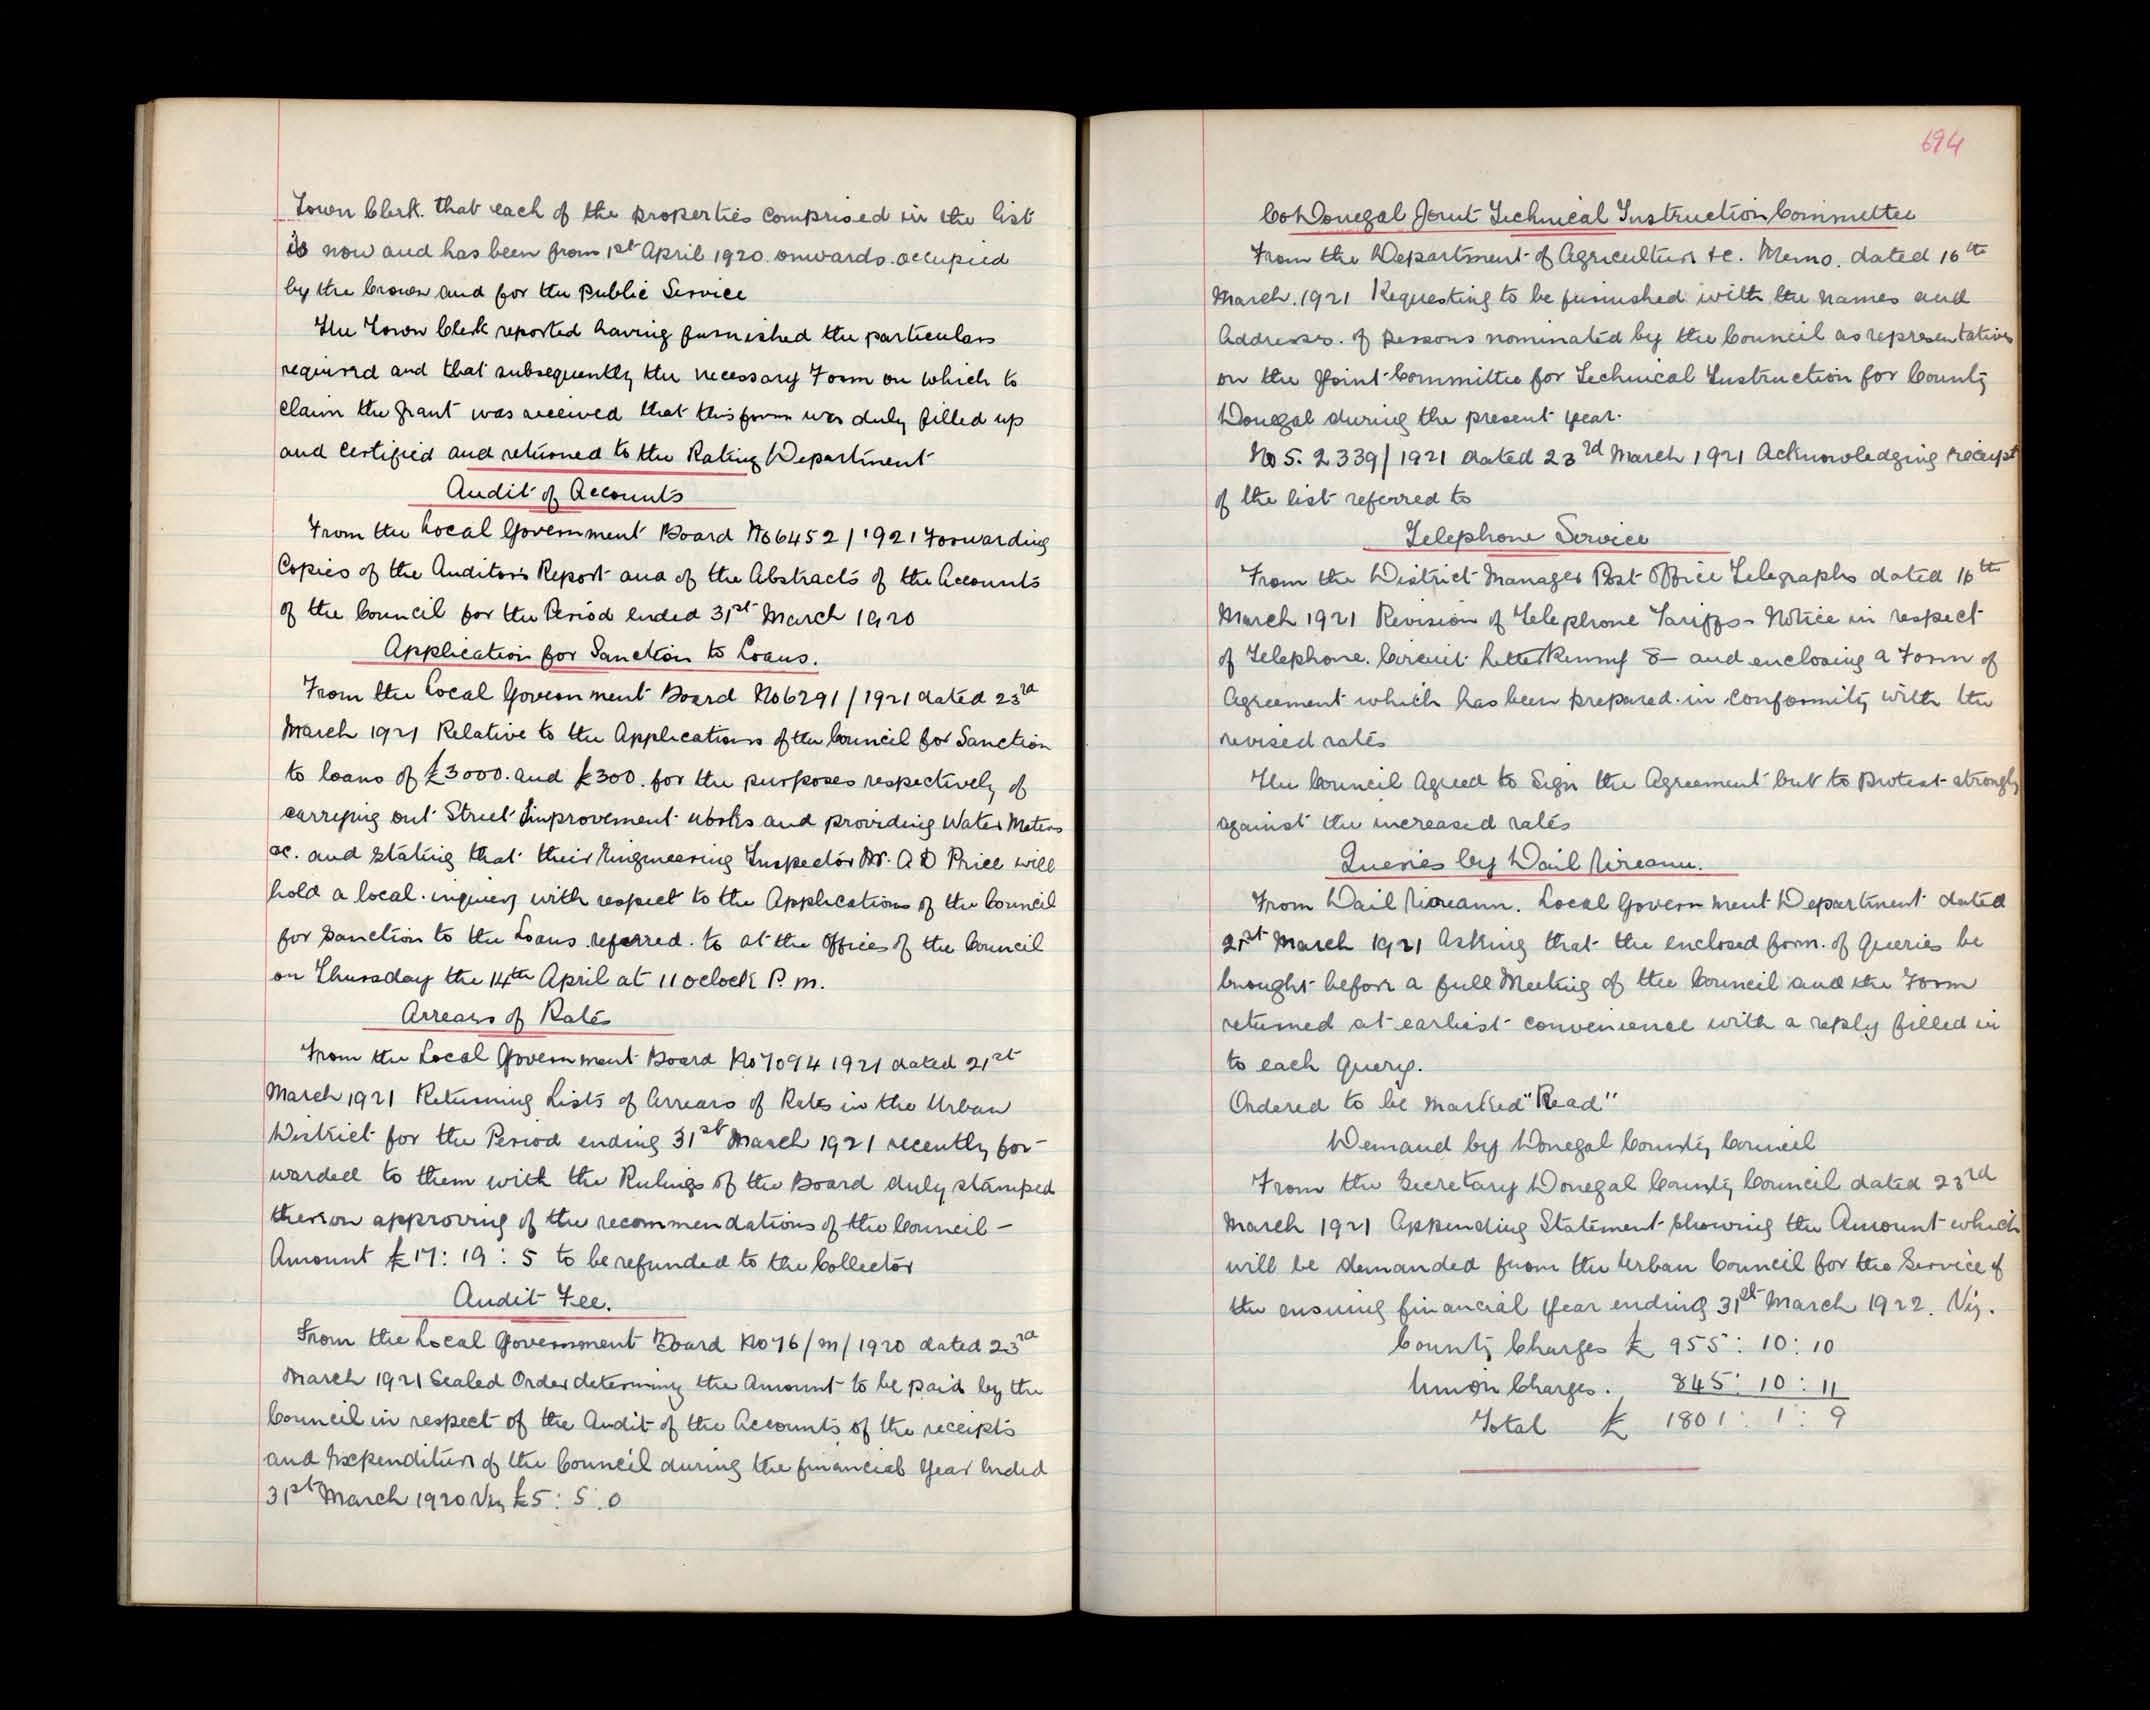 Town Clerk. that each of the properties comprised in the list
is now and has been from 1st April 1920 onwards occupied
by the Crown and for the Public Service
The Town Clerk reported having furnished the particulars
required and that subsequently the necessary Form on which to
claim the grant was received that this form was duly filled up
and certified and returned to the Rating Department
Audit of Accounts
From the Local Government Board No 6452/1921 Forwarding
Copies of the Auditor's Report and of the Abstracts of the Accounts
of the Council for the Period ended 31st March 1920
Application for Sanction to Loans.
From the Local Government Board No 6291/1921 dated 23rd
March 1921 Relative to the Applications of the Council for Sanction
to loans of £3000. and £300. for the purposes respectively of
carrying out Street Improvement works and providing Water Meters
&c. and stating that their Engineering Inspector Mr. A D Price will
hold a local inquiry with respect to the Applications of the Council
for sanction to the Loans referred to at the Offices of the Council
on Thursday the 14th April at 11 oclock P. m.
Arrears of Rates
From the Local Government Board No 7094 1921 dated 21st
March 1921 Returning Lists of Arrears of Rates in the Urban
District for the Period ending 31st March 1921 recently for-
warded to them with the Rulings of the Board duly stamped
thereon approving of the recommendations of the Council -
Amount £17: 19: 5 to be refunded to the Collector
Audit Fee.
From the Local Government Board No 76/m/1920 dated 23rd
March 1921 Sealed Order determing the Amount to be paid by the
Council in respect of the Audit of the Accounts of the receipts
and Expenditure of the Council during the financial Year ended
31st March 1920 Viz £5: 5: 0
694
Co Donegal Joint Technical Instruction Committee
From the Department of Agriculture &c. Memo. dated 16th
March. 1921 Requesting to be furnished with the names and
Addresses. of persons nominated by the Council as representatives
on the Joint Committee for Technical Instruction for County
Donegal during the present year.
No S. 2339/1921 dated 23rd March 1921 Acknowledging receipt
of the list referred to
Telephone Service
From the District Manager Post Office Telegraphs dated 16th
March 1921 Revision of Telephone Tariffs - Notice in respect
of Telephone. Circuit Letterkenny 8 - and enclosing a Form of
Agreement which has been prepared in conformity with the
revised rates
The Council Agreed to Sign the Agreement but to Protest strongly
against the increased rates
Queries by Dail Eireann.
From Dail Eireann. Local Government Department dated
21st March 1921 Asking that the enclosed form of Queries be
brought before a full Meeting of the Council and the Form
returned at earliest convenience with a reply filled in
to each Query.
Ordered to be marked "Read"
Demand by Donegal County Council
From the Secretary Donegal County Council dated 23rd
March 1921 Appending Statement showing the Amount which
will be demanded from the Urban Council for the Service of
the ensuing financial Year ending 31st March 1922. Viz.
County Charges £ 955: 10: 10
Union Charges. 845: 10: 11
Total £ 1801: 1: 9